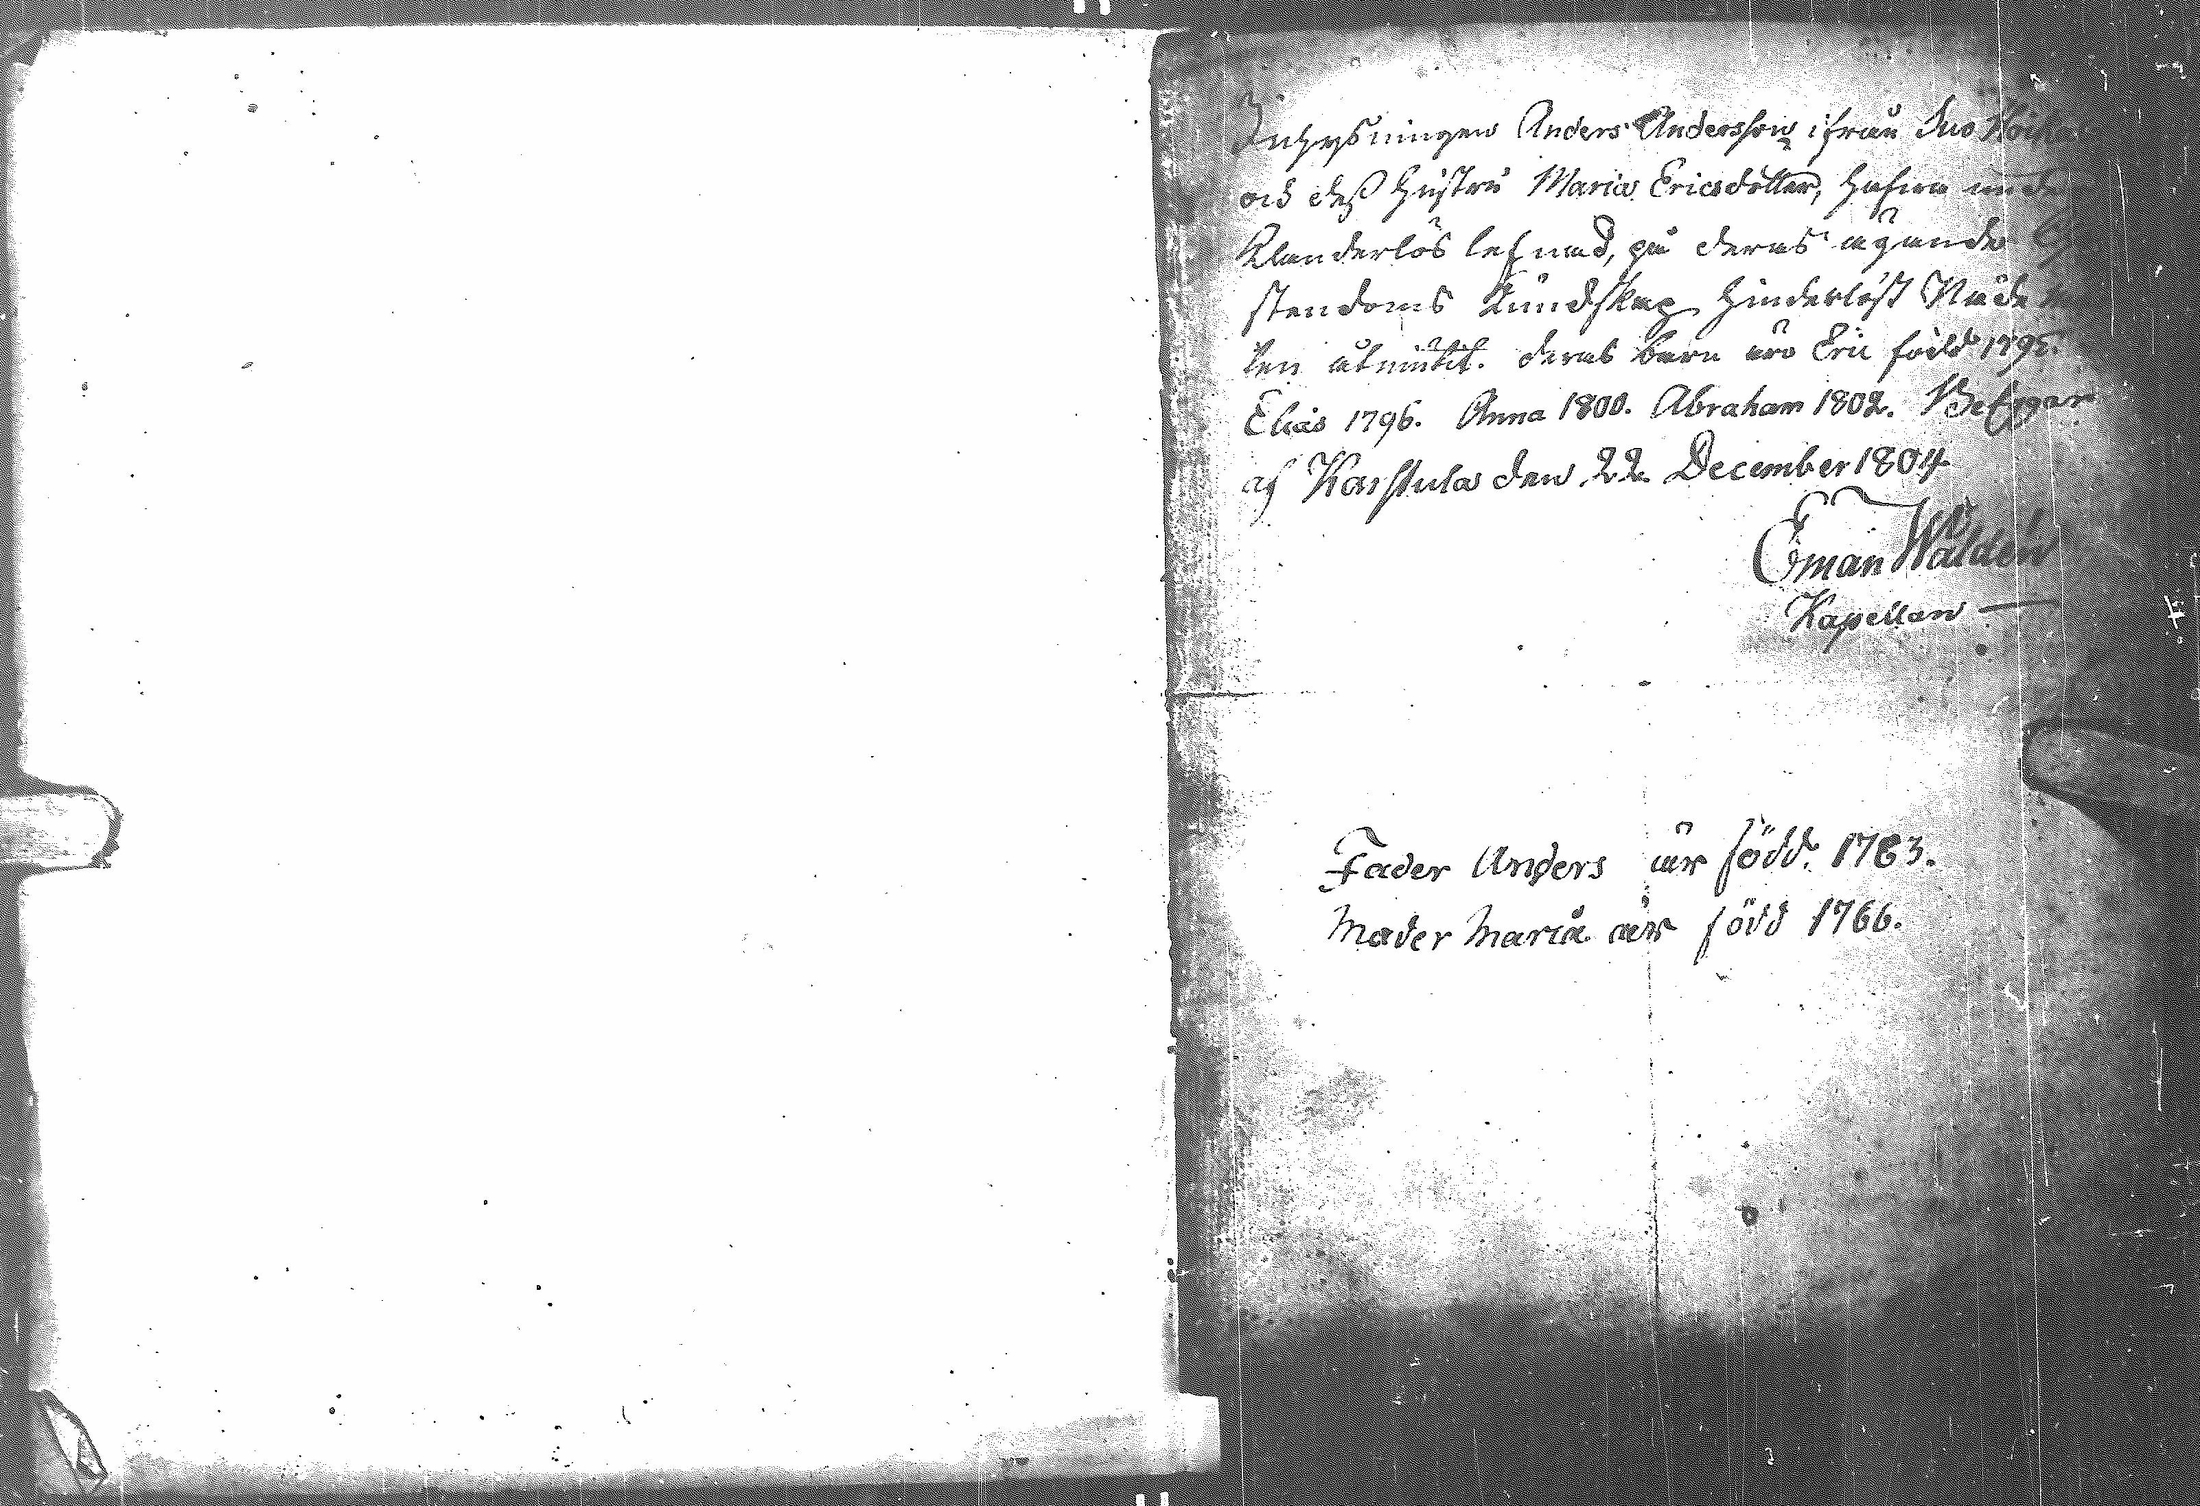 Inhysningen Anders Andersson ifrån
och dess hustru Maria Ericsdotter, hafva
Klanderlös lefnad, på deras ägande
stendoms Kundskap hinderlöst
ten åtniutit. deras barn äro Eric född 1795.
Elias 1796. Anna 1800. Abraham 1802. Betygar
af Karstula den 22 December 1804
Eman Walden
Kapellan
Fader Anders är född. 1763.
Moder Maria är född 1766.